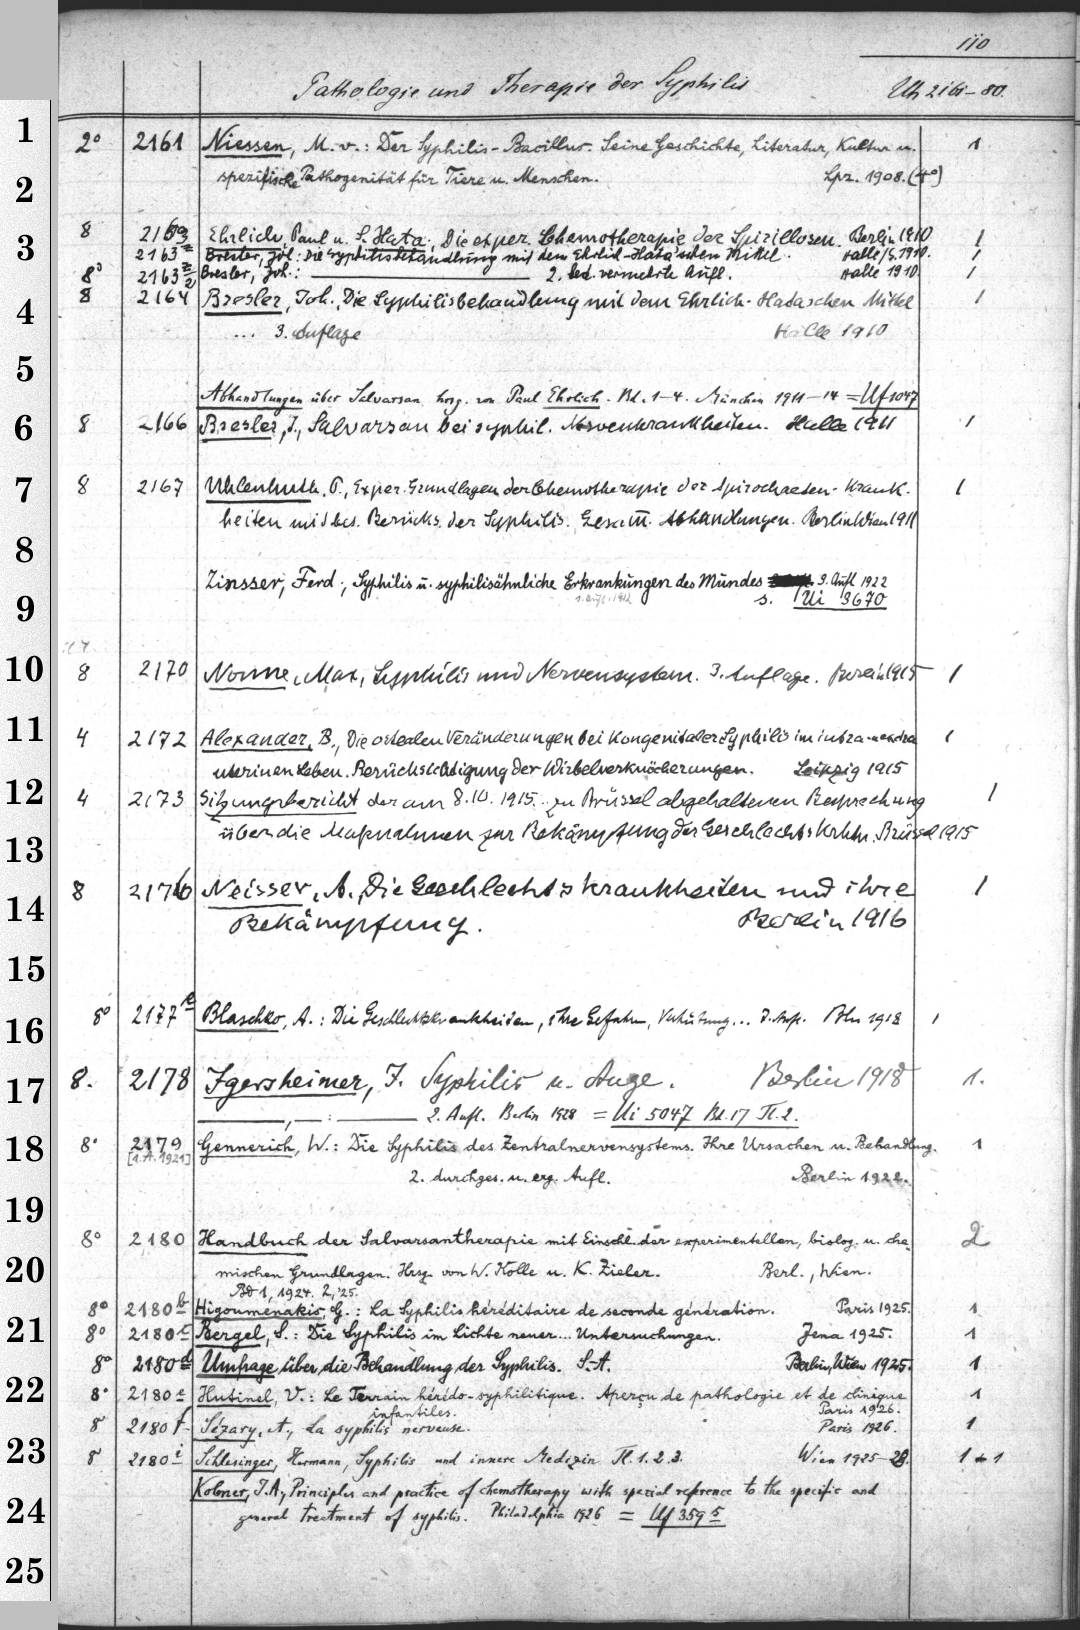 110
Pathologie und Therapie der Syphilis Uh 2161-80.
1
2° 2161 Niessen, M. v.: Der Syphilis-Bacillus. Seine Geschichte, Literatur, Kultur u. 1
2 spezifische Pathogenität für Tiere u. Menschen. Lpz. 1908. (4°)
8 Ehrlich, Paul u. S. Hata, Die exper. Chemotherapie der Spirillosen. Berlin 1910 1
3 2163 Bresler, Joh.: Die Syphilisbehandlung mit dem Ehrlich-Hata'schen Mittel. Halle/S. 1910. 1
8° 2163 Bresler, Joh.: 2. bed. vermehrte Aufl. Halle 1910 1
8 2164 Bresler, Joh., Die Syphilisbehandlung mit dem Ehrlich-Hataschen Mittel 1
4 ... 3. Auflage Halle 1910
5
Abhandlungen über Salvarsan hrsg. von Paul Ehrlich. Bd. 1-4. München 1911-14 = Uf 1047
6 8 2166 Bresler, J., Salvarsan bei syphil. Nervenkrankheiten. Halle 1911 1
7 8 2167 Uhlenhuth, P., Exper. Grundlagen der Chemotherapie der Spirochaeten-Krank- 1
heiten mit bes. Berücks. der Syphilis. Abhandlungen. Berlin Wien 1911
8
Zinsser, Ferd., Syphilis u. syphilisähnliche Erkrankungen des Mundes 3. Aufl 1922
9 1. Aufl. 1912 s. Ui 3670
10 8 2170 Nonne, Max, Syphilis und Nervensystem. 3. Auflage. Berlin 1915 1
11 4 2172 Alexander, B., Die ostealen Veränderungen bei kongenitaler Syphilis im 1
uterinen Leben. Berücksichtigung der Wirbelverknöcherungen. Leipzig 1915
12 4 2173 Sitzungsbericht der am 8.10.1915. zu Brüssel abgehaltenen Besprechung 1
13 über die Maßnahmen zur Bekämpfung der Geschlechtskrkhtn. Brüssel 1915
8 2176 Neisser, A., Die Geschlechtskrankheiten und ihre 1
14 Bekämpfung. Berlin 1916
15
16 8° 2177 Blaschko, A.: Die Geschlechtskrankheiten, ihre Gefahren, Verhütung... Bln 1918 1
17 8. 2178 Igersheimer, J. Syphilis u. Auge. Berlin 1918 1.
2. Aufl. Berlin 1928 = Ui 5047 Bd. 17 Tl. 2.
18 8° 2179 Gennerich, W.: Die Syphilis des Zentralnervensystems. Ihre Ursachen u. Behandlung. 1
[1. A. 1921] 2. durchges. u. erg. Aufl. Berlin 1922.
19
8° 2180 Handbuch der Salvarsantherapie mit Einschl. der experimentellen, biolog. u. che- 2
20 mischen Grundlagen. Hrsg. von W. Kolle u. K. Zieler. Berl., Wien.
Bd 1, 1924. 2, '25.
8° 2180 b Higoumenakis, G.: La Syphilis héréditaire de seconde génération. Paris 1925. 1
21 8° 2180 c Bergel, S.: Die Syphilis im Lichte neuer... Untersuchungen. Jena 1925. 1
8° 2180 d Umfrage über die Behandlung der Syphilis. S.-A. Berlin, Wien 1925. 1
22 8° 2180 e Hutinel, V.: Le Terrain hérédo-syphilitique. Aperçu de pathologie et de clinique 1
infantiles. Paris 1926.
8° 2180 f Sézary, A., La syphilis nerveuse. Paris 1926. 1
23 8° 2180 i Schlesinger, Hermann, Syphilis und innere Medizin Tl. 1. 2. 3. Wien 1925-28. 1+1
Kolmer, J. A., Principles and practice of chemotherapy with special reference to the specific and
24 general treatment of syphilis. Philadelphia 1926 = Uf 359 5
25